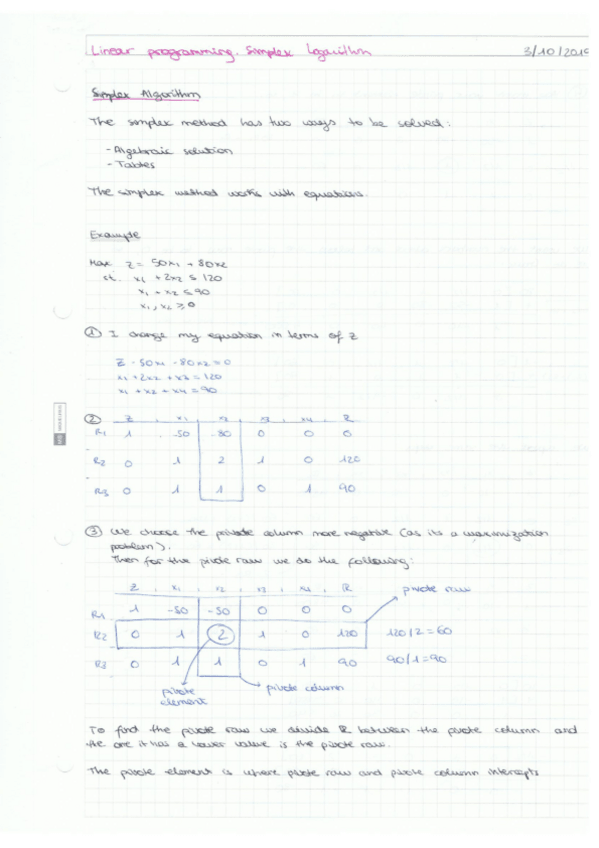 Linear programming. Simplex Logarithm 3/10/2019
Simplex Algorithm
The simplex method has two ways to be solved:
- Algebraic solution
- Tables
The simplex method works with equations.
Example
Max Z = 50x1 + 80x2
st. x1 + 2x2 ≤ 120
x1 + x2 ≤ 90
x1, x2 ≥ 0
① I change my equation in terms of Z
Z - 50x1 - 80x2 = 0
x1 + 2x2 + x3 = 120
x1 + x2 + x4 = 90
② Z x1 x2 x3 x4 R
R1 1 -50 -80 0 0 0
R2 0 1 2 1 0 120
R3 0 1 1 0 1 90
③ We choose the pivote column more negative (as its a maximization
problem).
Then for the pivote raw we do the following:
Z x1 x2 x3 x4 R pivote raw
R1 1 -50 -50 0 0 0
R2 0 1 2 1 0 120 120/2=60
R3 0 1 1 0 1 90 90/1=90
pivote element pivote column
To find the pivote raw we divide R between the pivote column and
the one it has a lower value is the pivote raw.
The pivote element is where pivote raw and pivote column intercepts